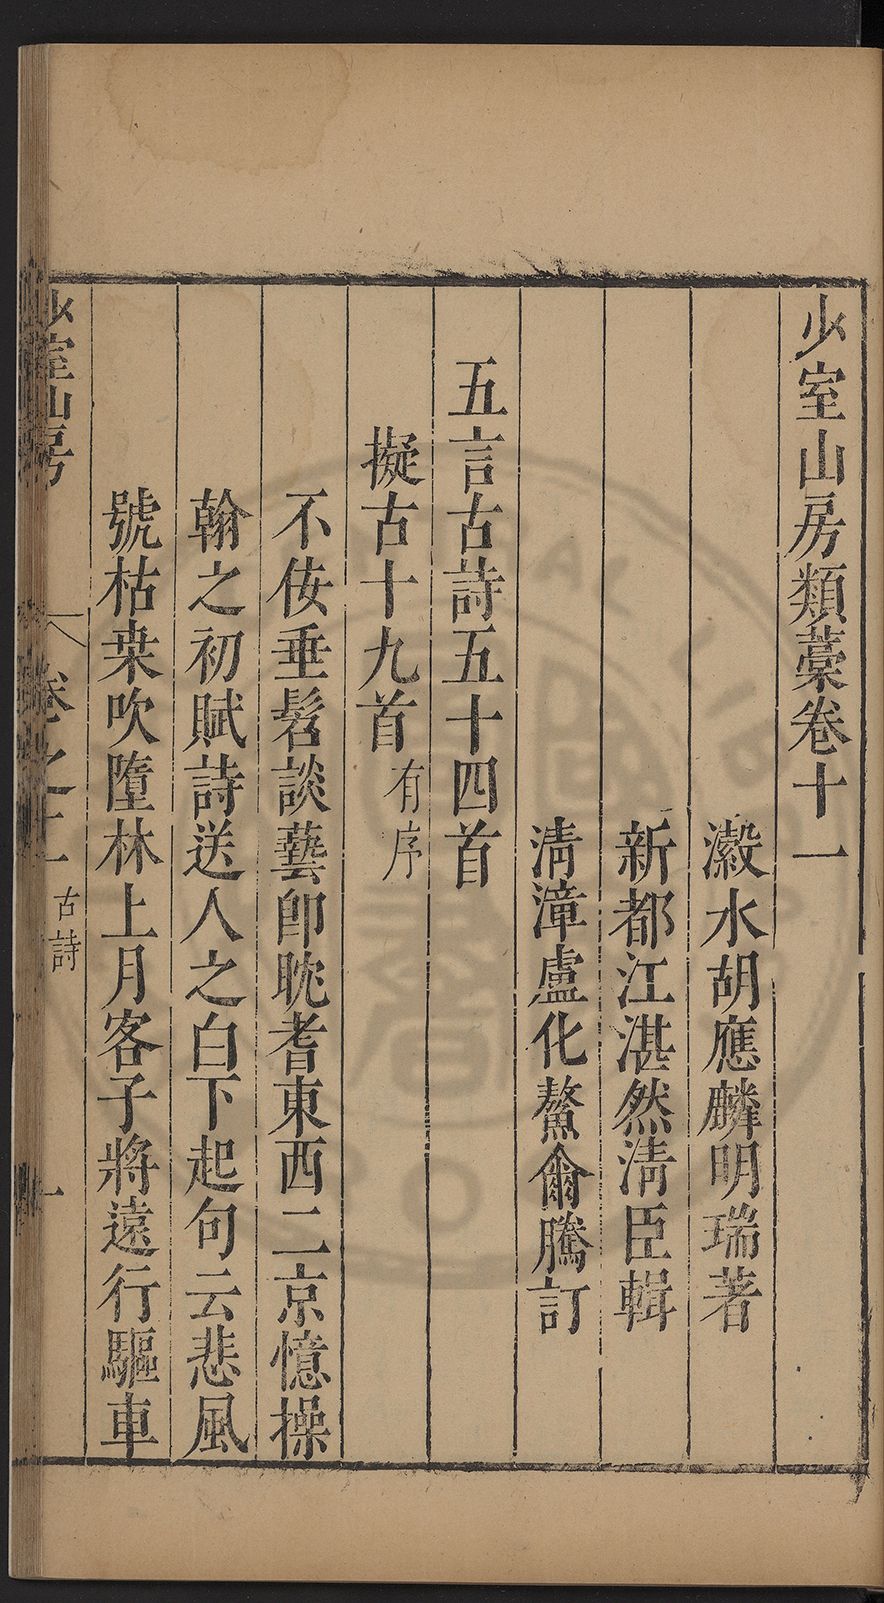 少室山房類藁卷十一
瀫水胡應麟明瑞著
新都江湛然清臣輯
清漳盧化鰲爾騰訂
五言古詩五十四首
擬古十九首 有序
不佞垂髫談藝卽眈耆東西二京憶操
翰之初賦詩送人之白下起句云悲風
號枯桒吹墮林上月客子將遠行驅車
少室山房 卷之十一 古詩 一